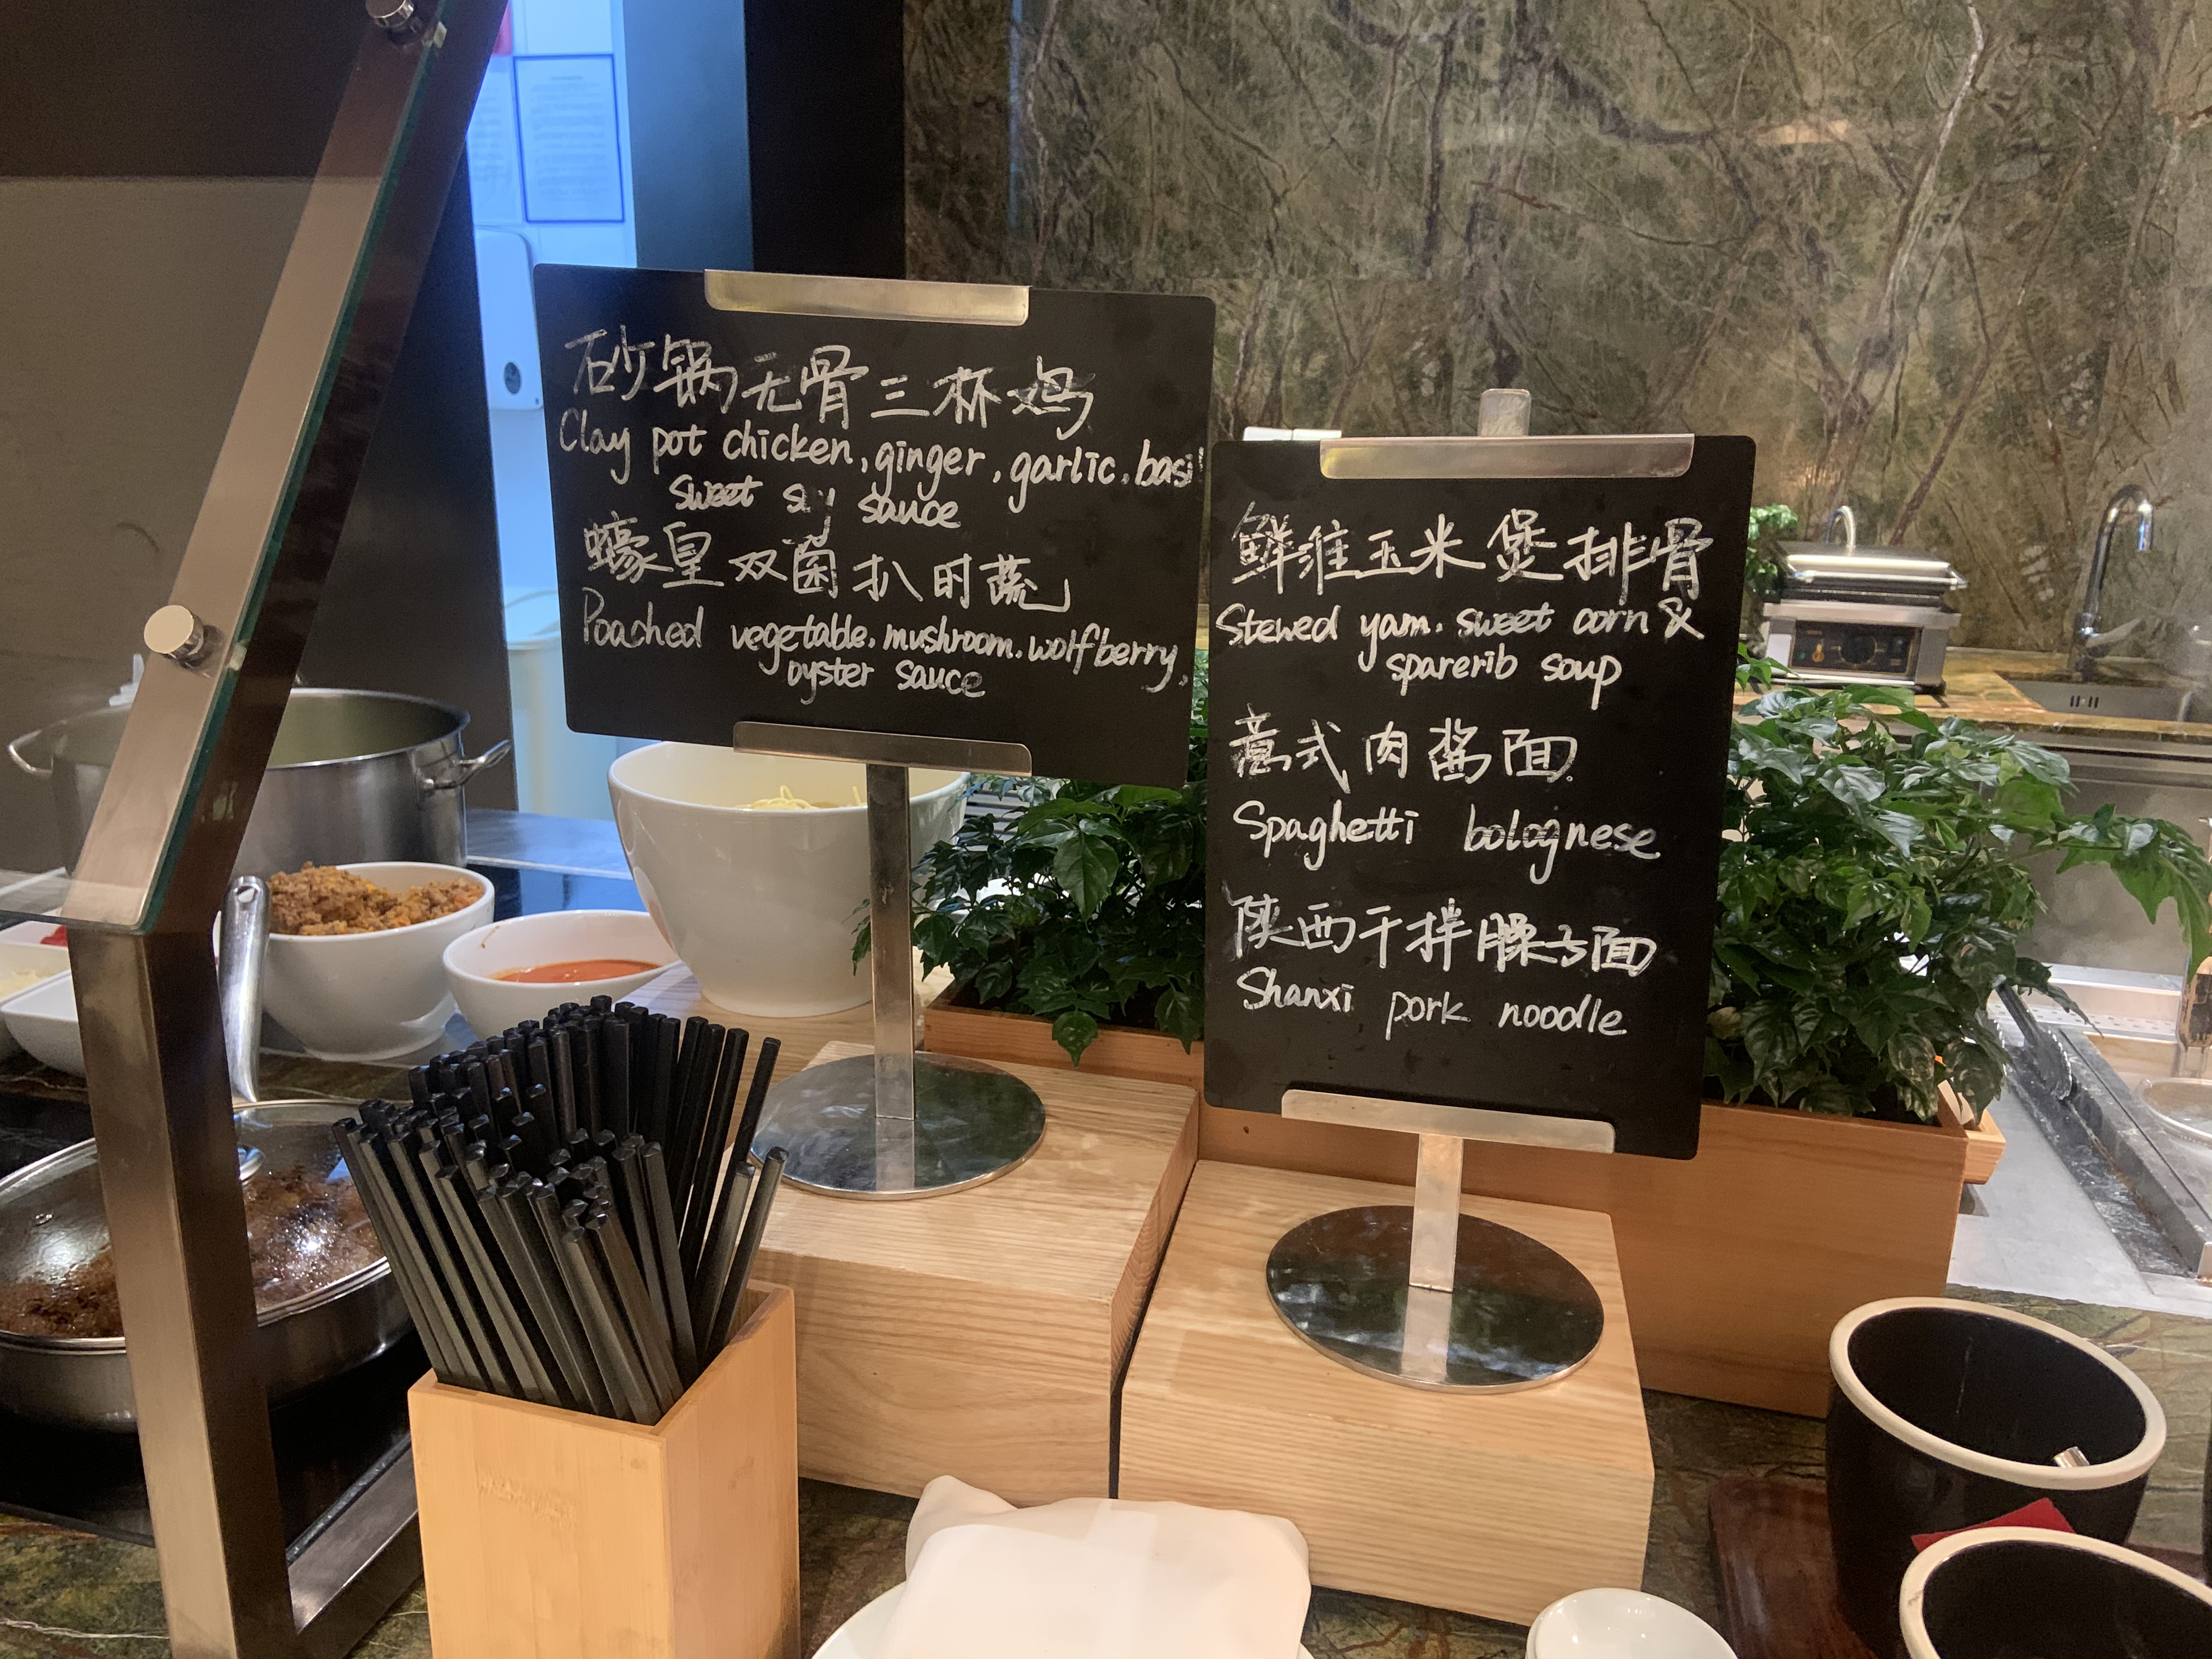 砂锅无骨三杯鸡
Clay pot chicken, ginger, garlic, basil
sweet soy sauce
蠔皇双菌扒时蔬
Poached vegetable, mushroom, wolfberry,
oyster sauce
鲜淮玉米煲排骨
Stewed yam, sweet corn &
sparerib soup
意式肉酱面
Spaghetti bolognese
陕西干拌臊子面
Shanxi pork noodle